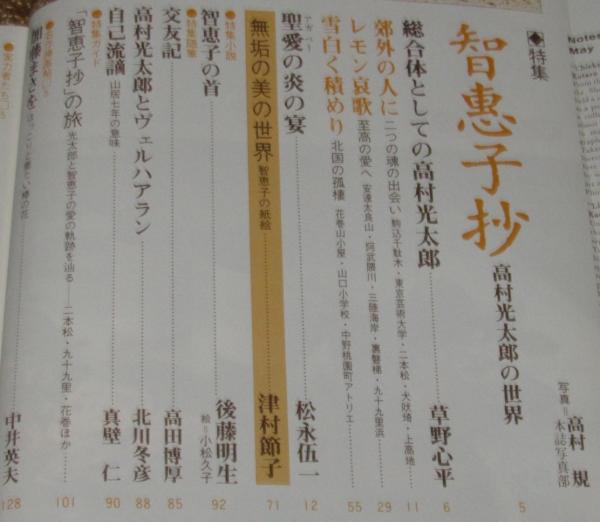 ◆特集
智恵子抄 高村光太郎の世界
高村 規
写真=本誌写真部
5
総合体としての高村光太郎 草野心平 6
郊外の人に 二つの魂の出会い 駒込千駄木・東京芸術大学・二本松・犬吠埼・上高地 11
レモン哀歌 至高の愛へ 安達太良山・阿武隈川・三陸海岸・裏磐梯・九十九里浜 29
雪白く積めり 北国の孤棲 花巻山小屋・山口小学校・中野桃園町アトリエ 55
聖愛の炎の宴 松永伍一 12
アガペー
無垢の美の世界 智恵子の紙絵 津村節子 71
●特集小説
智恵子の首 後藤明生 92
絵=小松久子
●特集随筆
交友記 高田博厚 85
高村光太郎とヴェルハアラン 北川冬彦 88
自己流謫 山居七年の意味 真壁 仁 90
●特集ガイド
「智恵子抄」の旅 光太郎と智恵子の愛の軌跡を辿る 二本松・九十九里・花巻ほか 101
中井英夫 128
Notes
May